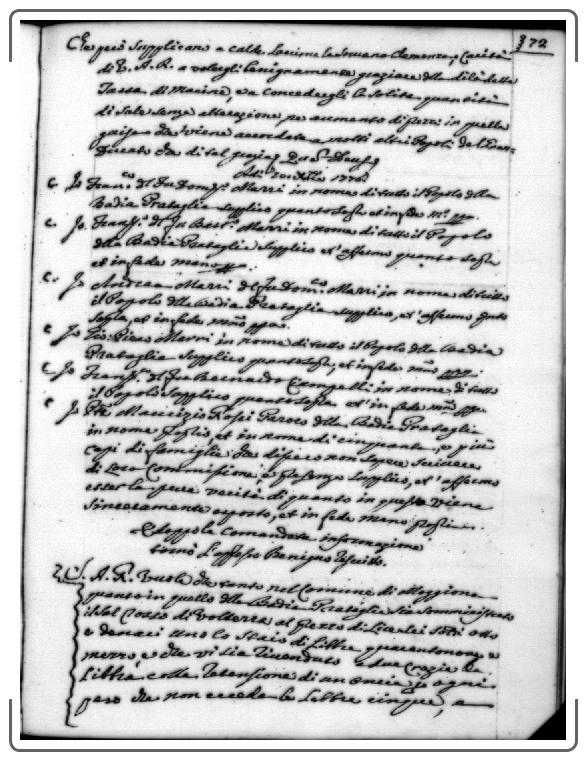 372
Che però Supplicano a calde Lacrime la Sovrana Clemenza, e Carità
di V. A. R. a volergli benignamente graziare della della
Tassa di Macine, e a concedergli la Solita quantità
di Sale senza alterazione, per aumento di prezzi in quella
guisa che viene accordata a molti altri Popoli del
che di tal grazia
Io Franco del Domco Marri in nome di tutto il Popolo della
Badia Prataglia supplico quanto sopra et in fede mo ppa.
Io Franco del Marri in nome di tutto il Popolo
della Badia Prataglia supplico et affermo quanto sopra
et in fede mano
Io Andrea Marri del Domco Marri in nome di tutto
il Popolo della Badia Prataglia supplico, et affermo qnto
sopra, et in fede mano ppa.
Io Gio: Piero Marri in nome di tutto il Popolo della Badia
Prataglia supplico quanto sopra, et in fede mano ppa.
Io Franco del Bernardo in nome di tutto
il Popolo supplico quanto sopra et in fede mano ppa.
Io Maurizio Rossi Paroco della Badia Prataglia
in nome proprio, et in nome di cinquanta, e più
capi di famiglia che dissero non sapere scrivere
di Loro Commissione, e presenza supplico, et affermo
esser la pura verità di quanto in questa viene
sinceramente esposto, et in fede mano propria
E doppo le comandate informazione
tornò l'appresso Benigno rescritto.
S. A. R. Vuole che tanto nel Comune di Moggiona
quanto in quello della Badia Prataglia sia somministrato
il Sal Rosso di Volterra al prezzo di Lire Sei Soldi otto
e denari uno lo Staio di Libbre quarantanove, e
mezzo, e che vi sia rivenduto a due crazie la
Libbra colla retensione di un oncia p ogni
peso che non ecceda le Libbre cinque, e